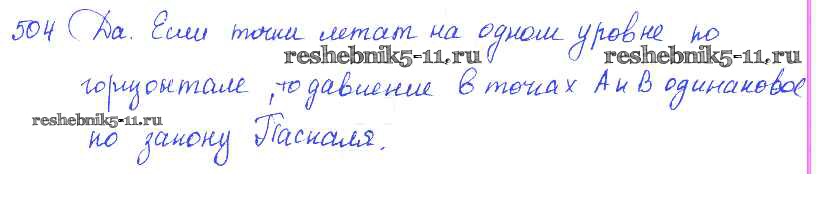 504 Да. Если точки летат на одном уровне по
reshebnik5-11.ru reshebnik5-11.ru
горизонтале, то давление в точках А и В одинаковое
reshebnik5-11.ru
по закону Паскаля.